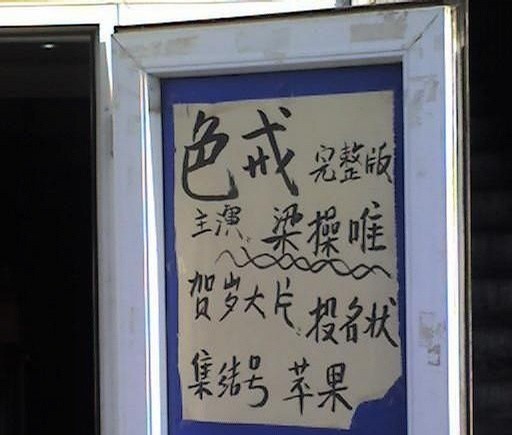 色戒 完整版
主演 梁操唯
贺岁大片 投名状
集结号 苹果